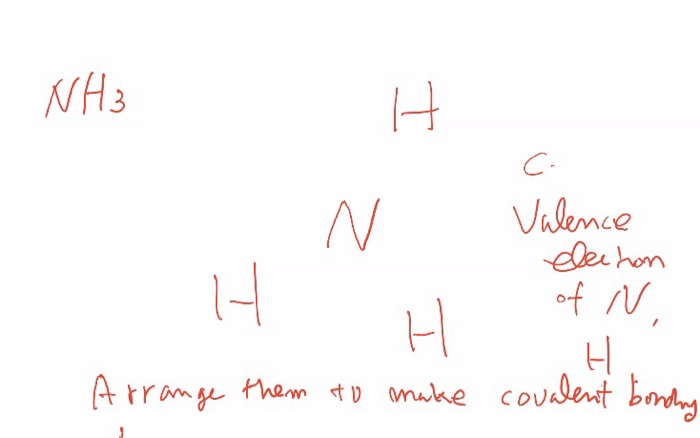 NH3
H
C.
N
Valence
electron
of N,
H
H
H
Arrange them to make covalent bonding